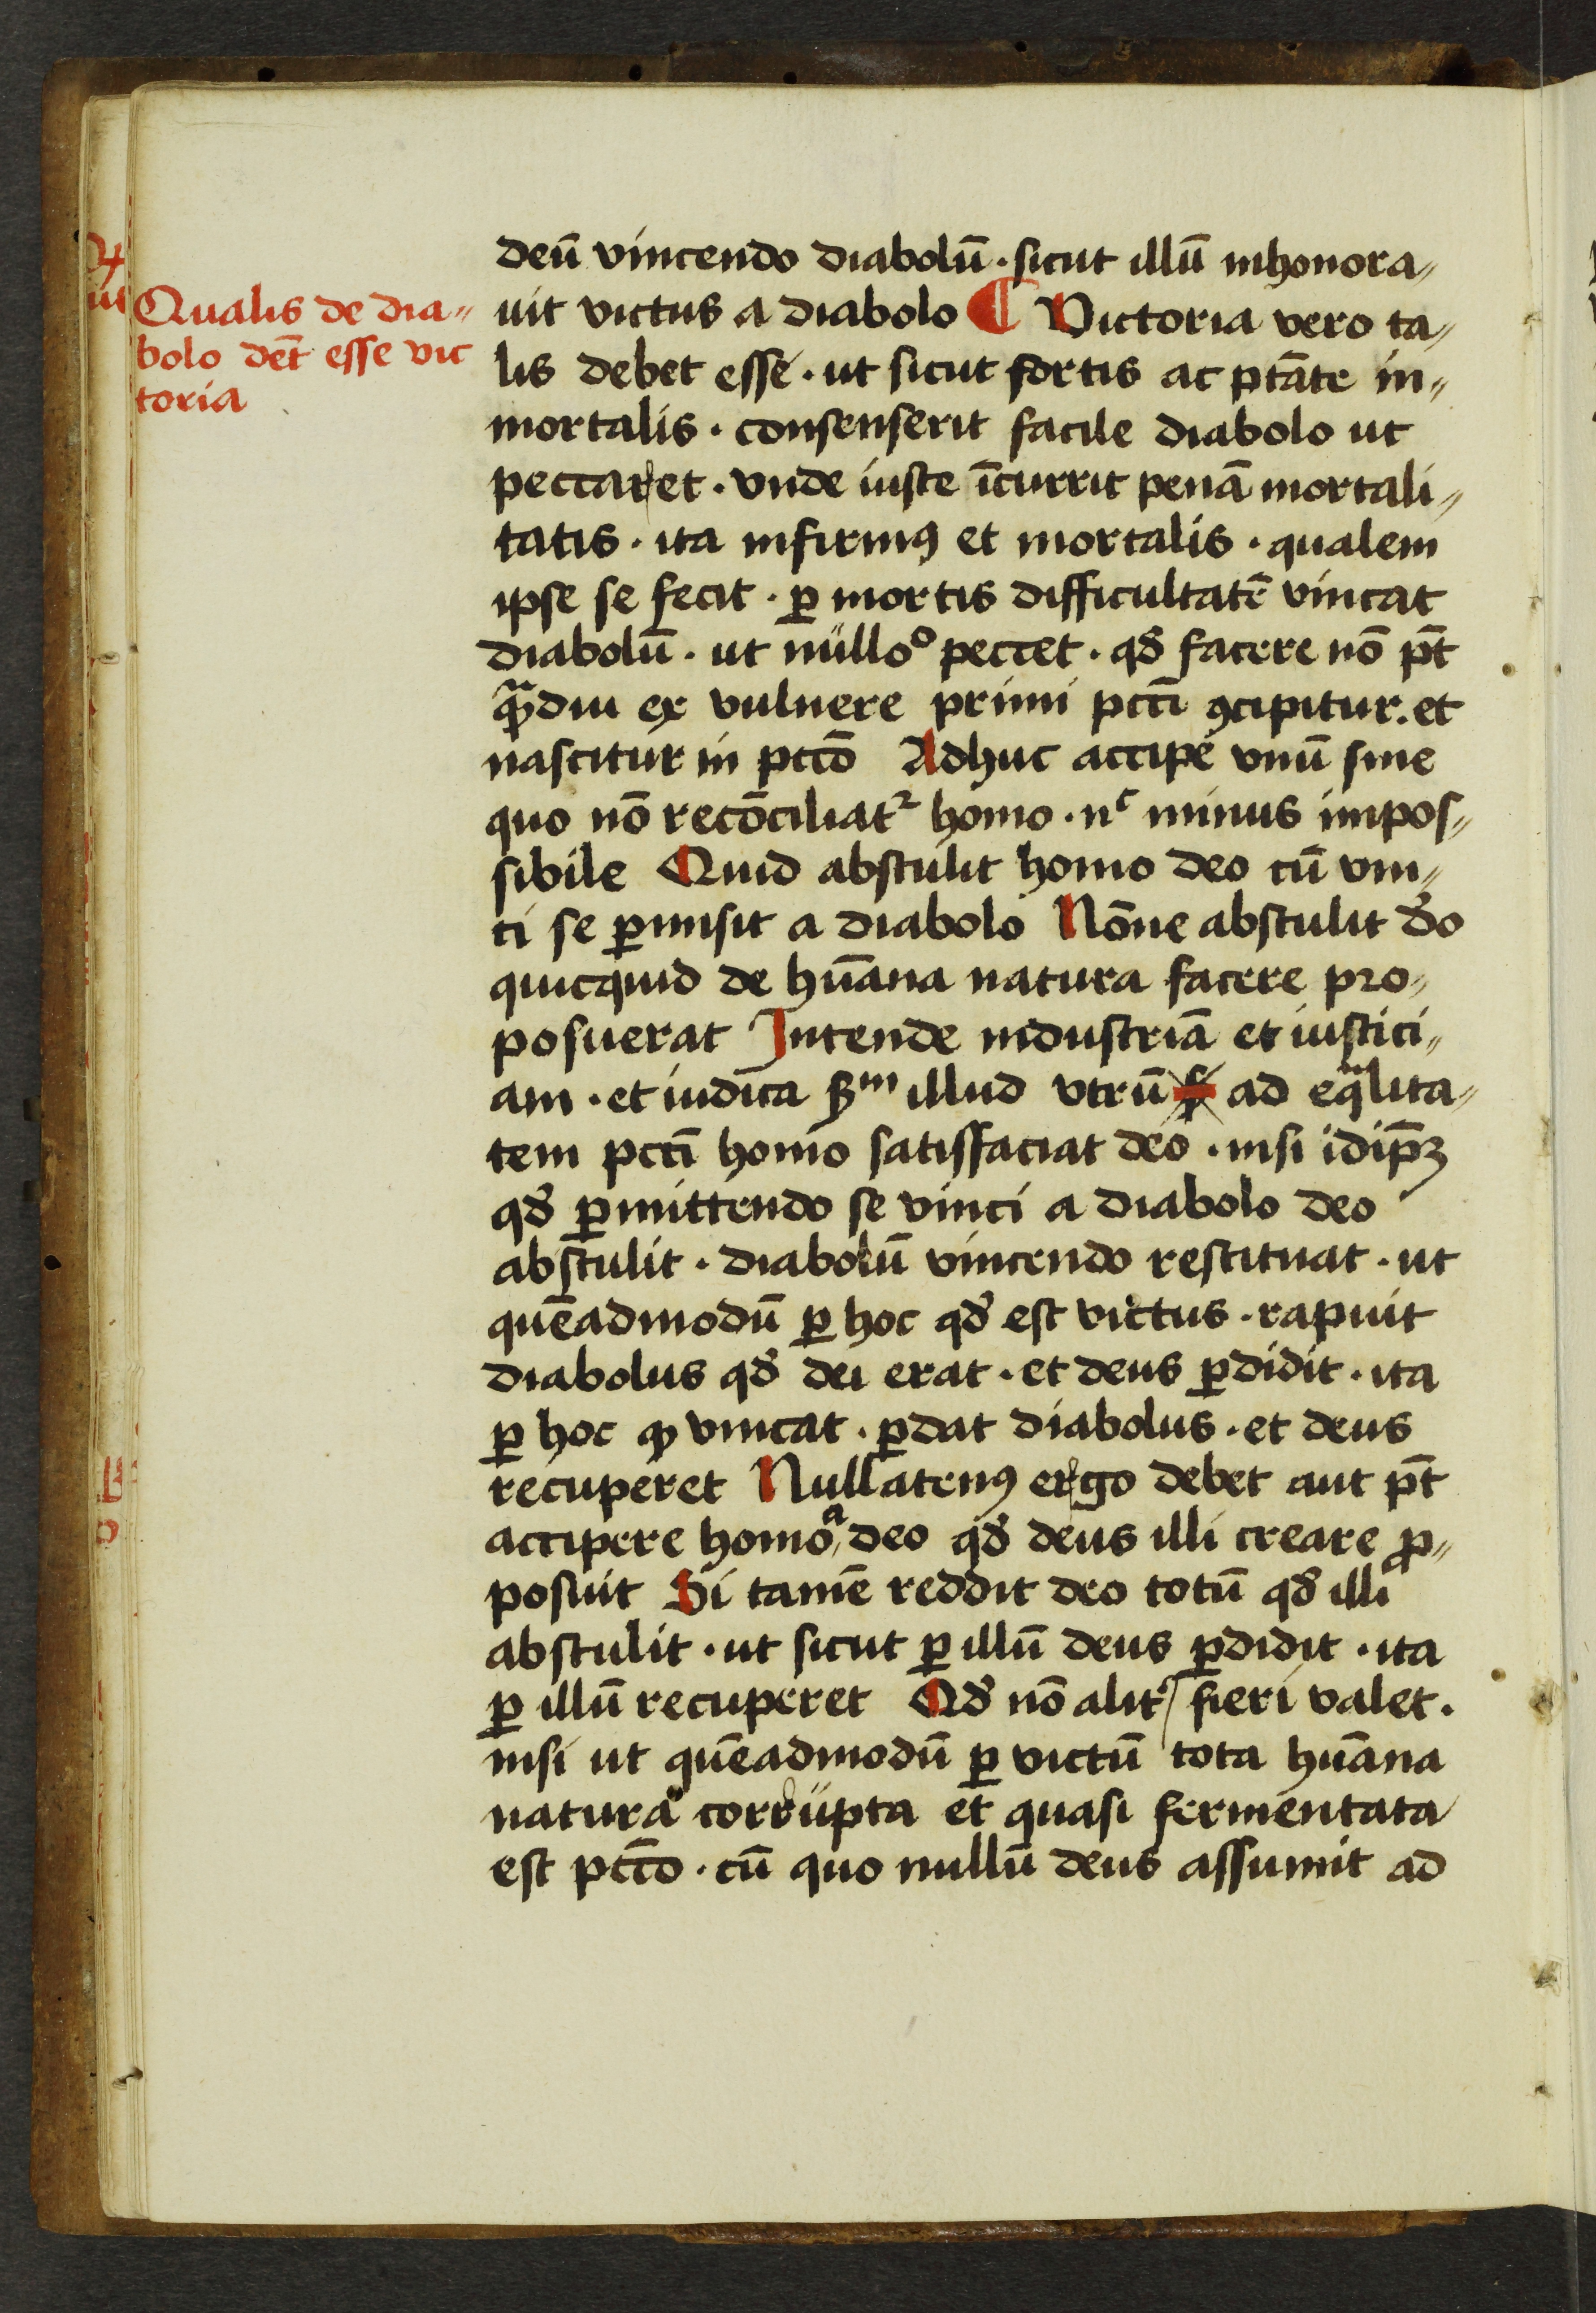 Qualis de dia„
bolo det̄ esse vic
toria
deū vincendo diabolū · sicut illū inhonora„
uit victus a diabolo ¶ Victoria vero ta„
lis debet esse · ut sicut fortis ac ptāte in„
mortalis · consenserit facile diabolo ut
peccaret · vnde iuste īcurrit penā mortali„
tatis · ita infirmꝰ et mortalis · qualem
ipse se fecit · ꝑ mortis difficultatē vincat
diabolū · ut nulloº peccet · qđ facere nō pt̄
qͣ̄diu ex vulnere primi pccī ꝯcipitur · et
nascitur in pccō Adhuc accipe vnū sine
quo nō recōciliatᷣ homo · nᶜ minus impos„
sibile Quid abstulit homo deo cū vin„
ci se ꝑmisit a diabolo Nōne abstulit đo
quicquid de hūana natura facere pro„
posuerat Intende industriā et iustici„
am · et iudica ẜᵐ illud vtrū ad eqͣlita„
tem pccī homo satisfaciat deo · nisi idip̄ꝫ
qđ ꝑmittendo se vinci a diabolo deo
abstulit · diabolū vincendo restituat · ut
quēadmodū ꝑ hoc qđ est victus · rapuit
diabolus qđ dei erat · et deus ꝑdidit · ita
ꝑ hoc ꝙ vincat · ꝑdat diabolus · et deus
recuperet Nullatenꝰ ergo debet aut pt̄
accipere homo a deo qđ deus illi creare ꝓ„
posuit Si tamē reddit deo totū qđ illi
abstulit · ut sicut ꝑ illū deus ꝑdidit · ita
ꝑ illū recuperet Qđ nō alitʳ fieri valet ·
nisi ut quēadmodū ꝑ victū tota hūana
natura corrupta et quasi fermentata
est pccō · cū quo nullū deus assumit ad